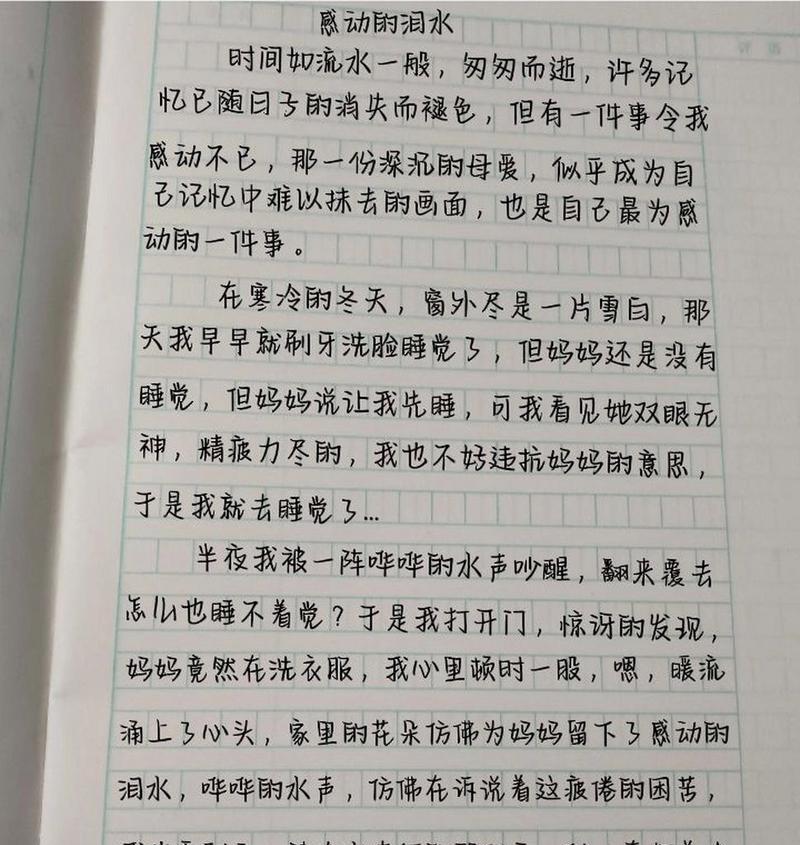 感动的泪水
时间如流水一般，匆匆而逝，许多记
忆已随日子的消失而褪色，但有一件事令我
感动不已，那一份深沉的母爱，似乎成为自
己记忆中难以抹去的画面，也是自己最为感
动的一件事。
在寒冷的冬天，窗外尽是一片雪白，那
天我早早就刷牙洗脸睡觉了，但妈妈还是没有
睡觉，但妈妈说让我先睡，可我看见她双眼无
神，精疲力尽的，我也不好违抗妈妈的意思，
于是我就去睡觉了...
半夜我被一阵哗哗的水声吵醒，翻来覆去
怎么也睡不着觉？于是我打开门，惊讶的发现，
妈妈竟然在洗衣服，我心里顿时一股，嗯，暖流
涌上了心头，家里的花朵仿佛为妈妈留下了感动的
泪水，哗哗的水声，仿佛在诉说着这疲倦的困苦，